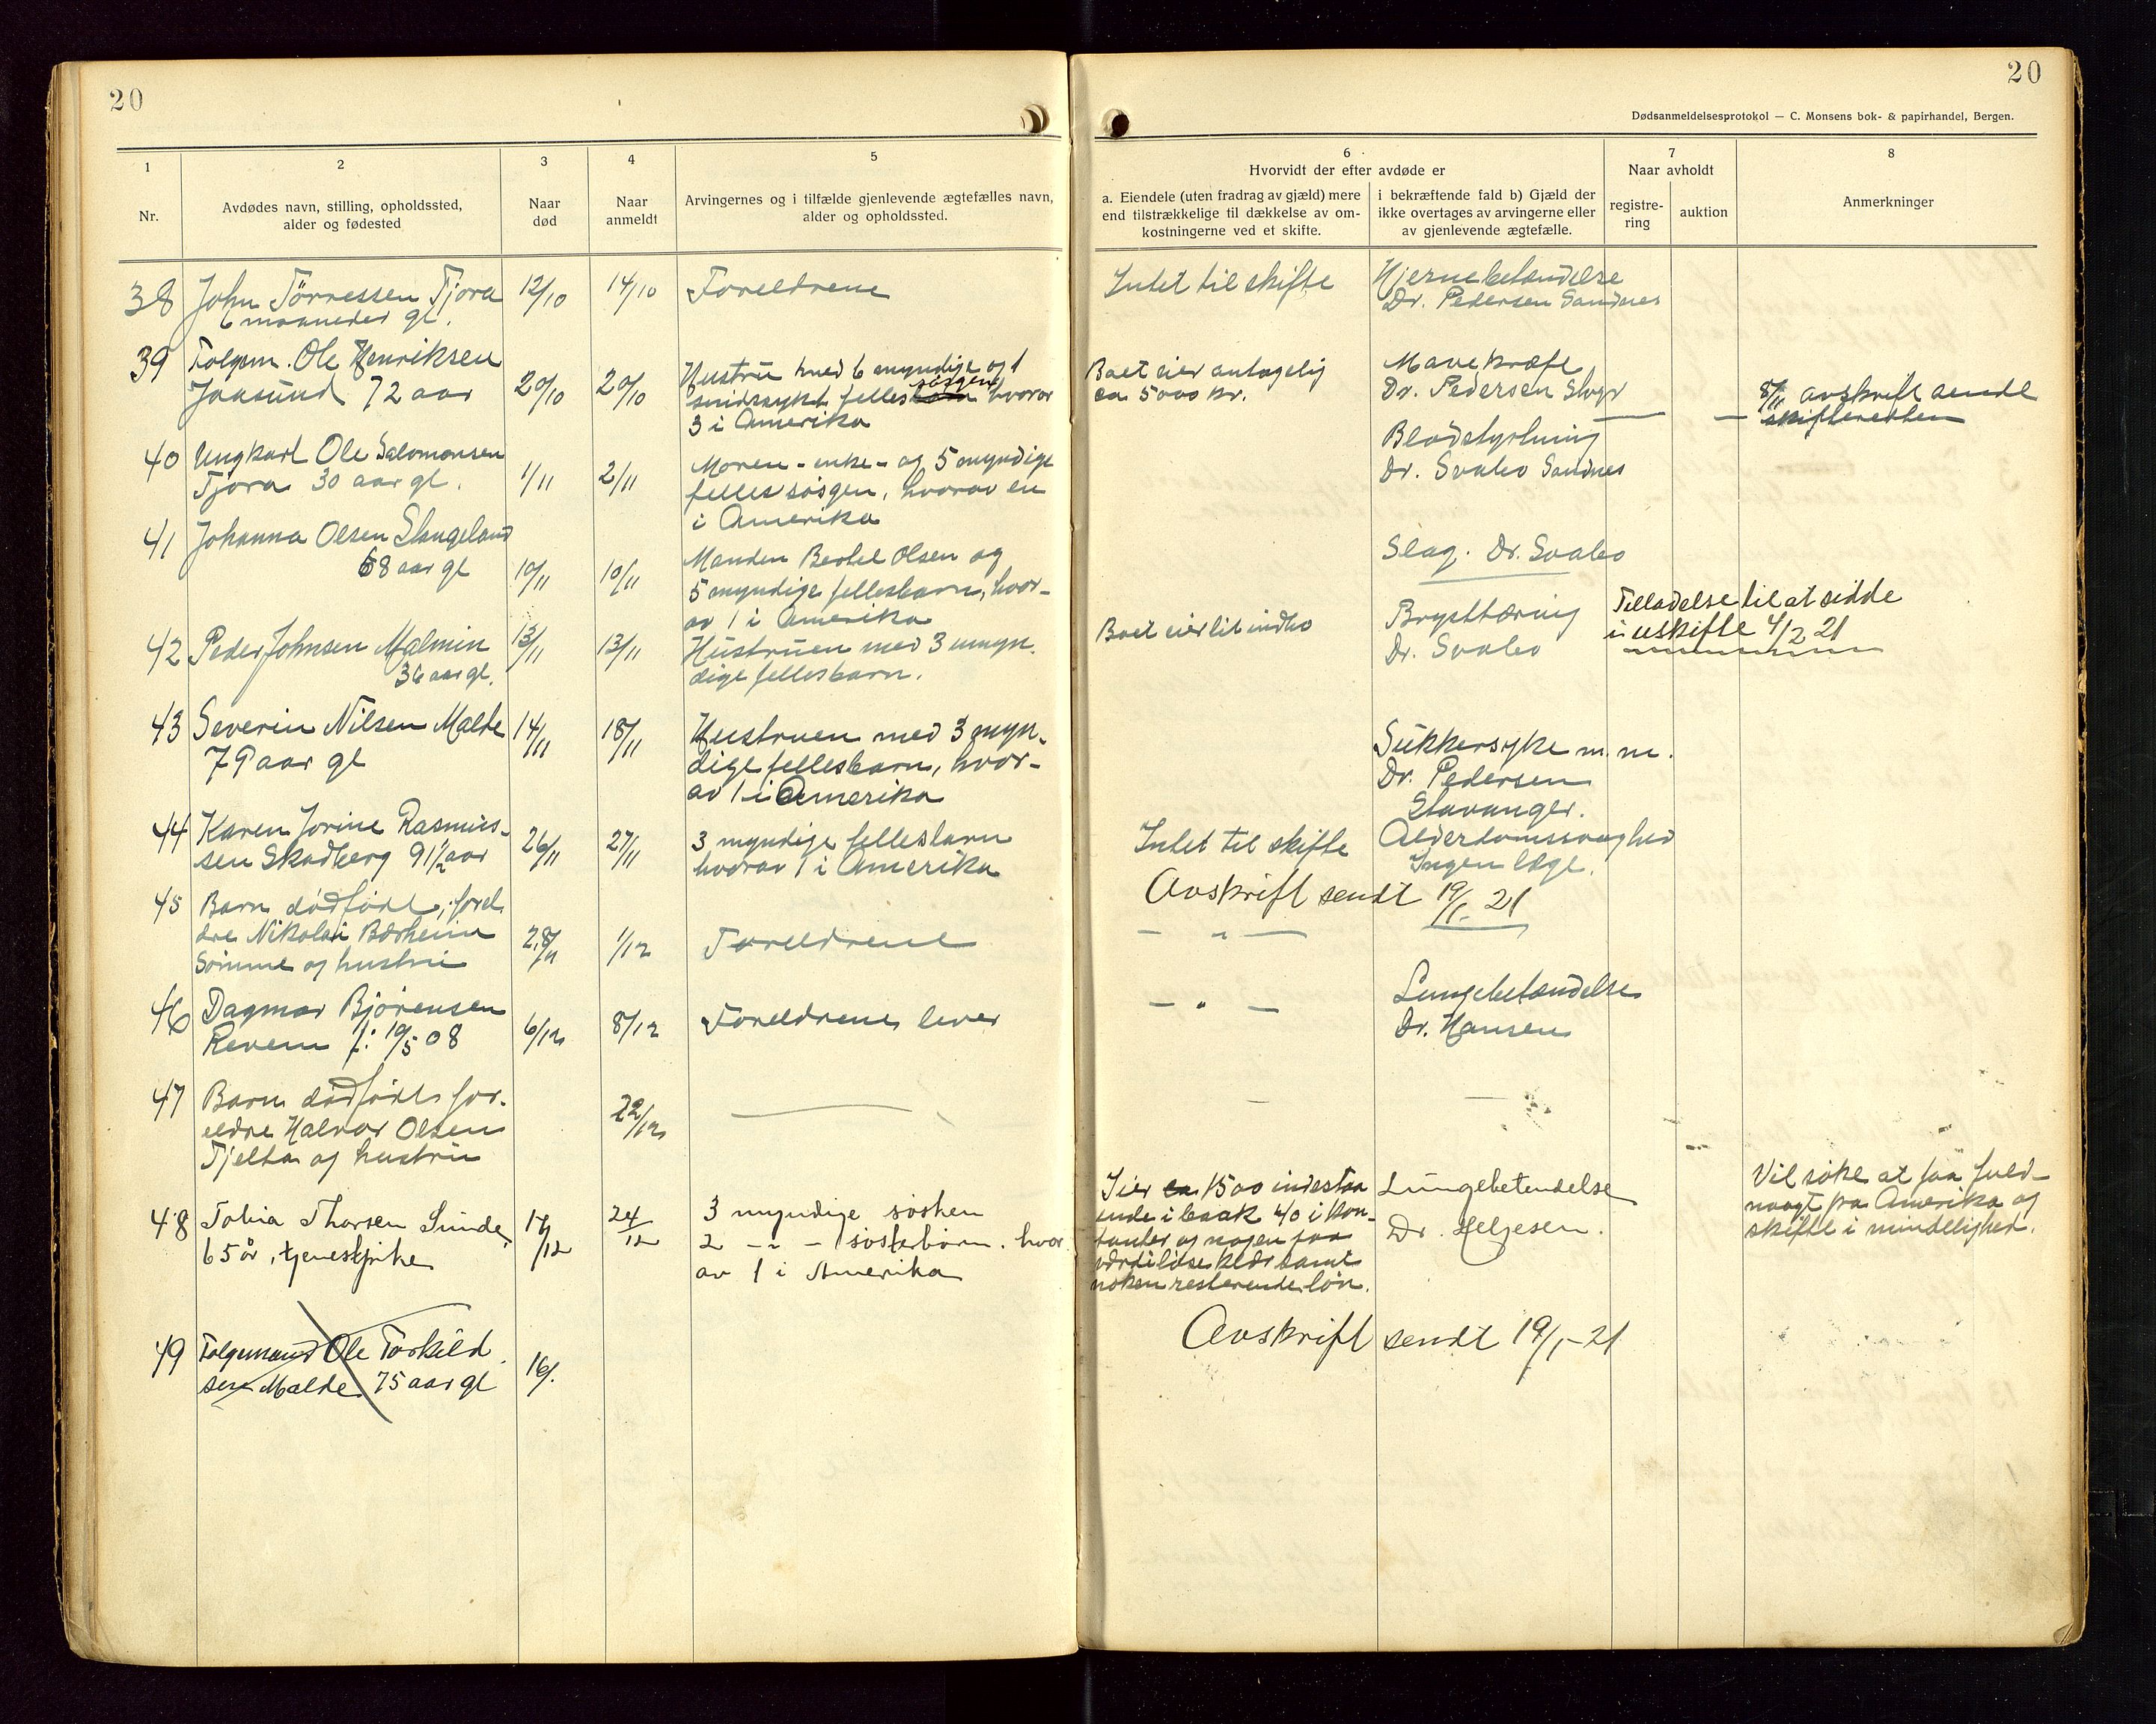 20
20
Dødsanmeldelsesprotokol — C. Monsens bok- & papirhandel, Bergen.
1
Nr.
2
Avdødes navn, stilling, opholdssted,
alder og fødested
3
Naar
død
4
Naar
anmeldt
5
Arvingernes og i tilfælde gjenlevende ægtefælles navn,
alder og opholdssted.
6
Hvorvidt der efter avdøde er
a. Eiendele (uten fradrag av gjæld) mere
end tilstrækkelige til dækkelse av om-
kostningerne ved et skifte.
i bekræftende fald b) Gjæld der
ikke overtages av arvingerne eller
av gjenlevende ægtefælle.
7
Naar avholdt
registre-
ring
auktion
8
Anmerkninger
38 John Törressen Tjora 12/10 14/10 Foreldrene Intet til skifte Hjernebetændelse
6 maaneder gl. Dr. Pedersen Sandnes
39 Folgem. Ole Henriksen
Jaasund 72 aar 20/10 20/10
Hustru med 6 myndige og 1
sindssykt felles barn søsgen hvorav
3 i Amerika
Boet eier antagelig
ca 5000 kr.
Mavekræft
Dr. Pedersen Stvgr
8/11 avskrift sendt
skifteretten
40 Ungkarl Ole Salomonsen
Tjora 30 aar gl. 1/11 2/11
Moren - enke - og 5 myndige
felles søsgen, hvorav en
i Amerika
Blodstyrtning
Dr. Svabo Sandnes
41 Johanna Olsen Stangeland
68 aar gl 10/11 10/11
Manden Bertel Olsen og
5 myndige fellesbarn, hvor-
av 1 i Amerika
Slag. Dr. Svabo
42 Peder Johnsen Malmin 13/11 13/11
36 aar gl.
Hustruen med 3 umyn.
dige fellesbarn.
Boet eier lit indbo
Brysttæring
Dr. Svabo
Tilladelse til at sidde
i uskifte 4/2 21
43 Severin Nilsen Malde 14/11 18/11
79 aar gl
Hustruen med 3 myn.
dige fellesbarn, hvor-
av 1 i Amerika
Sukkersyke m. m.
Dr. Pedersen
Stavanger.
44 Karen Jorine Rasmus-
sen Skadberg 91 1/2 aar 26/11 27/11
3 myndige fellesbarn
hvorav 1 i Amerika
Intet til skifte
Alderdomssvaghed
Ingen læge.
Avskrift sendt 19/1. 21
45 Barn dødfødt, forel
dre Nikolai Bærheim 28/11 1/12 Foreldrene — " —
Sømme og hustru
46 Dagmar Bjørensen
Revem f: 19/5 08 6/12 8/12 Foreldrene lever — " —
Lungebetændelse
Dr. Hansen
47 Barn dødfødt for.
eldre Halvor Olsen 22/12 — — —
Tjelta og hustru
48 Tobia Thorsen Sunde, 17/12 24/12
65 år, tjenestpike
3 myndige søsken
2 - " - søsterbørn. hvor
av 1 i Amerika
Eier ca 1500 indestaa
ende i bank 40 i kon-
tanter og nogen faa
værdiløse klær samt
noken resterende løn.
Lungebetendelse
Dr. Helgesen.
Vil søke at faa fuld-
magt fra Amerika og
skifte i mindelighed.
Avskrift sendt 19/1-21
49 Folgemand Ole Torkild
sen Malde 75 aar gl 16/.